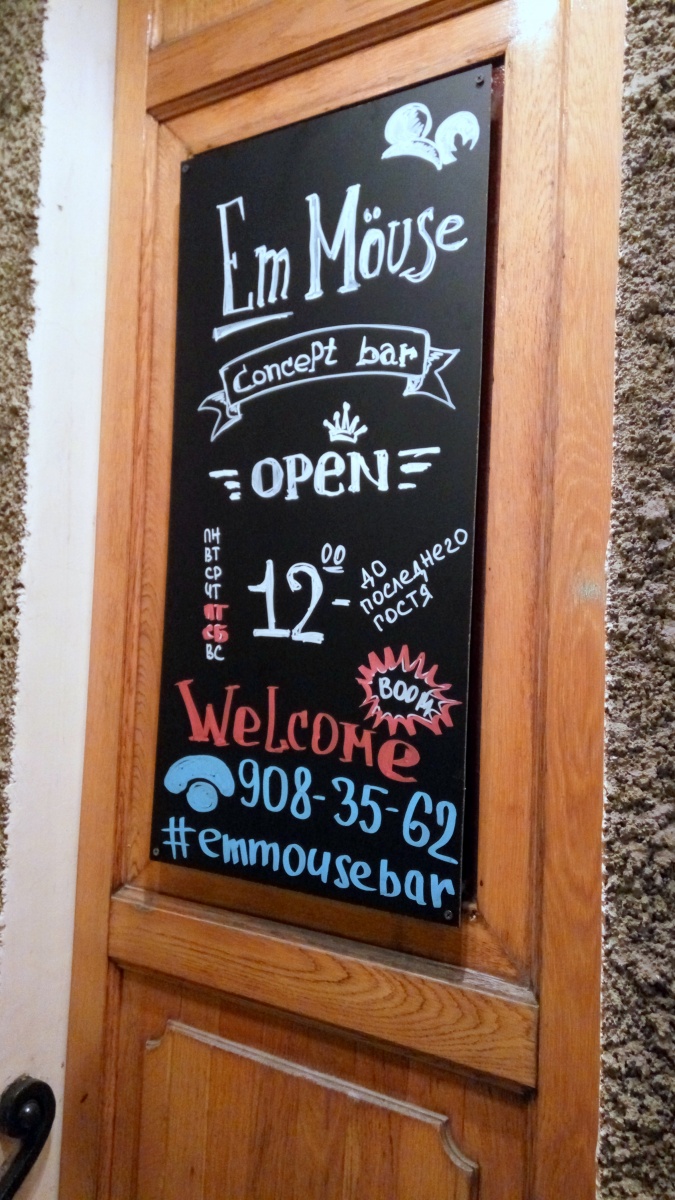 Em Möuse
concept bar
OPEN
ПН
ВТ
СР
ЧТ
ПТ
СБ
ВС
12 00 -
ДО
ПОСЛЕДНЕГО
ГОСТЯ
BOOM
Welcome
908-35-62
#emmousebar